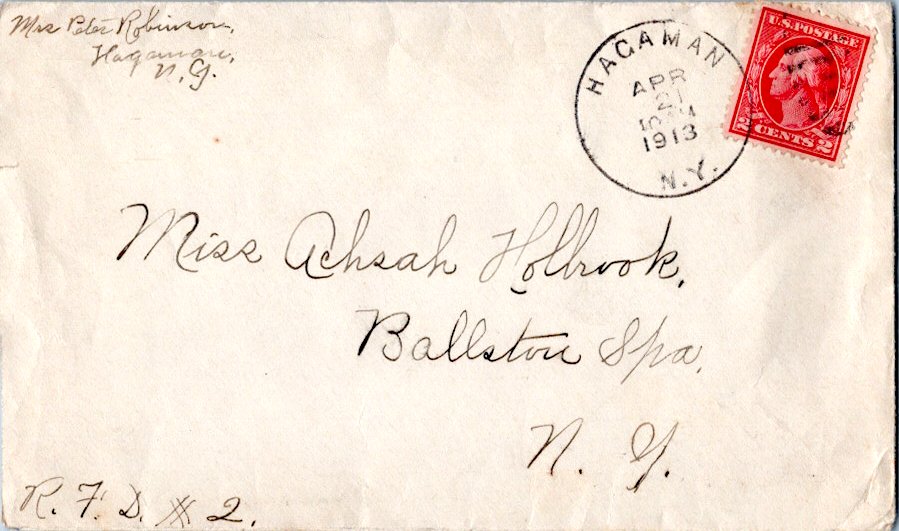 Mrs Peter Robinson,
Hagaman,
N.Y.
HAGAMAN
APR
21
10 AM
1913
N.Y.
U.S. POSTAGE
2 CENTS 2
Miss Achsah Holbrook,
Ballston Spa,
N. Y.
R. F. D. # 2.